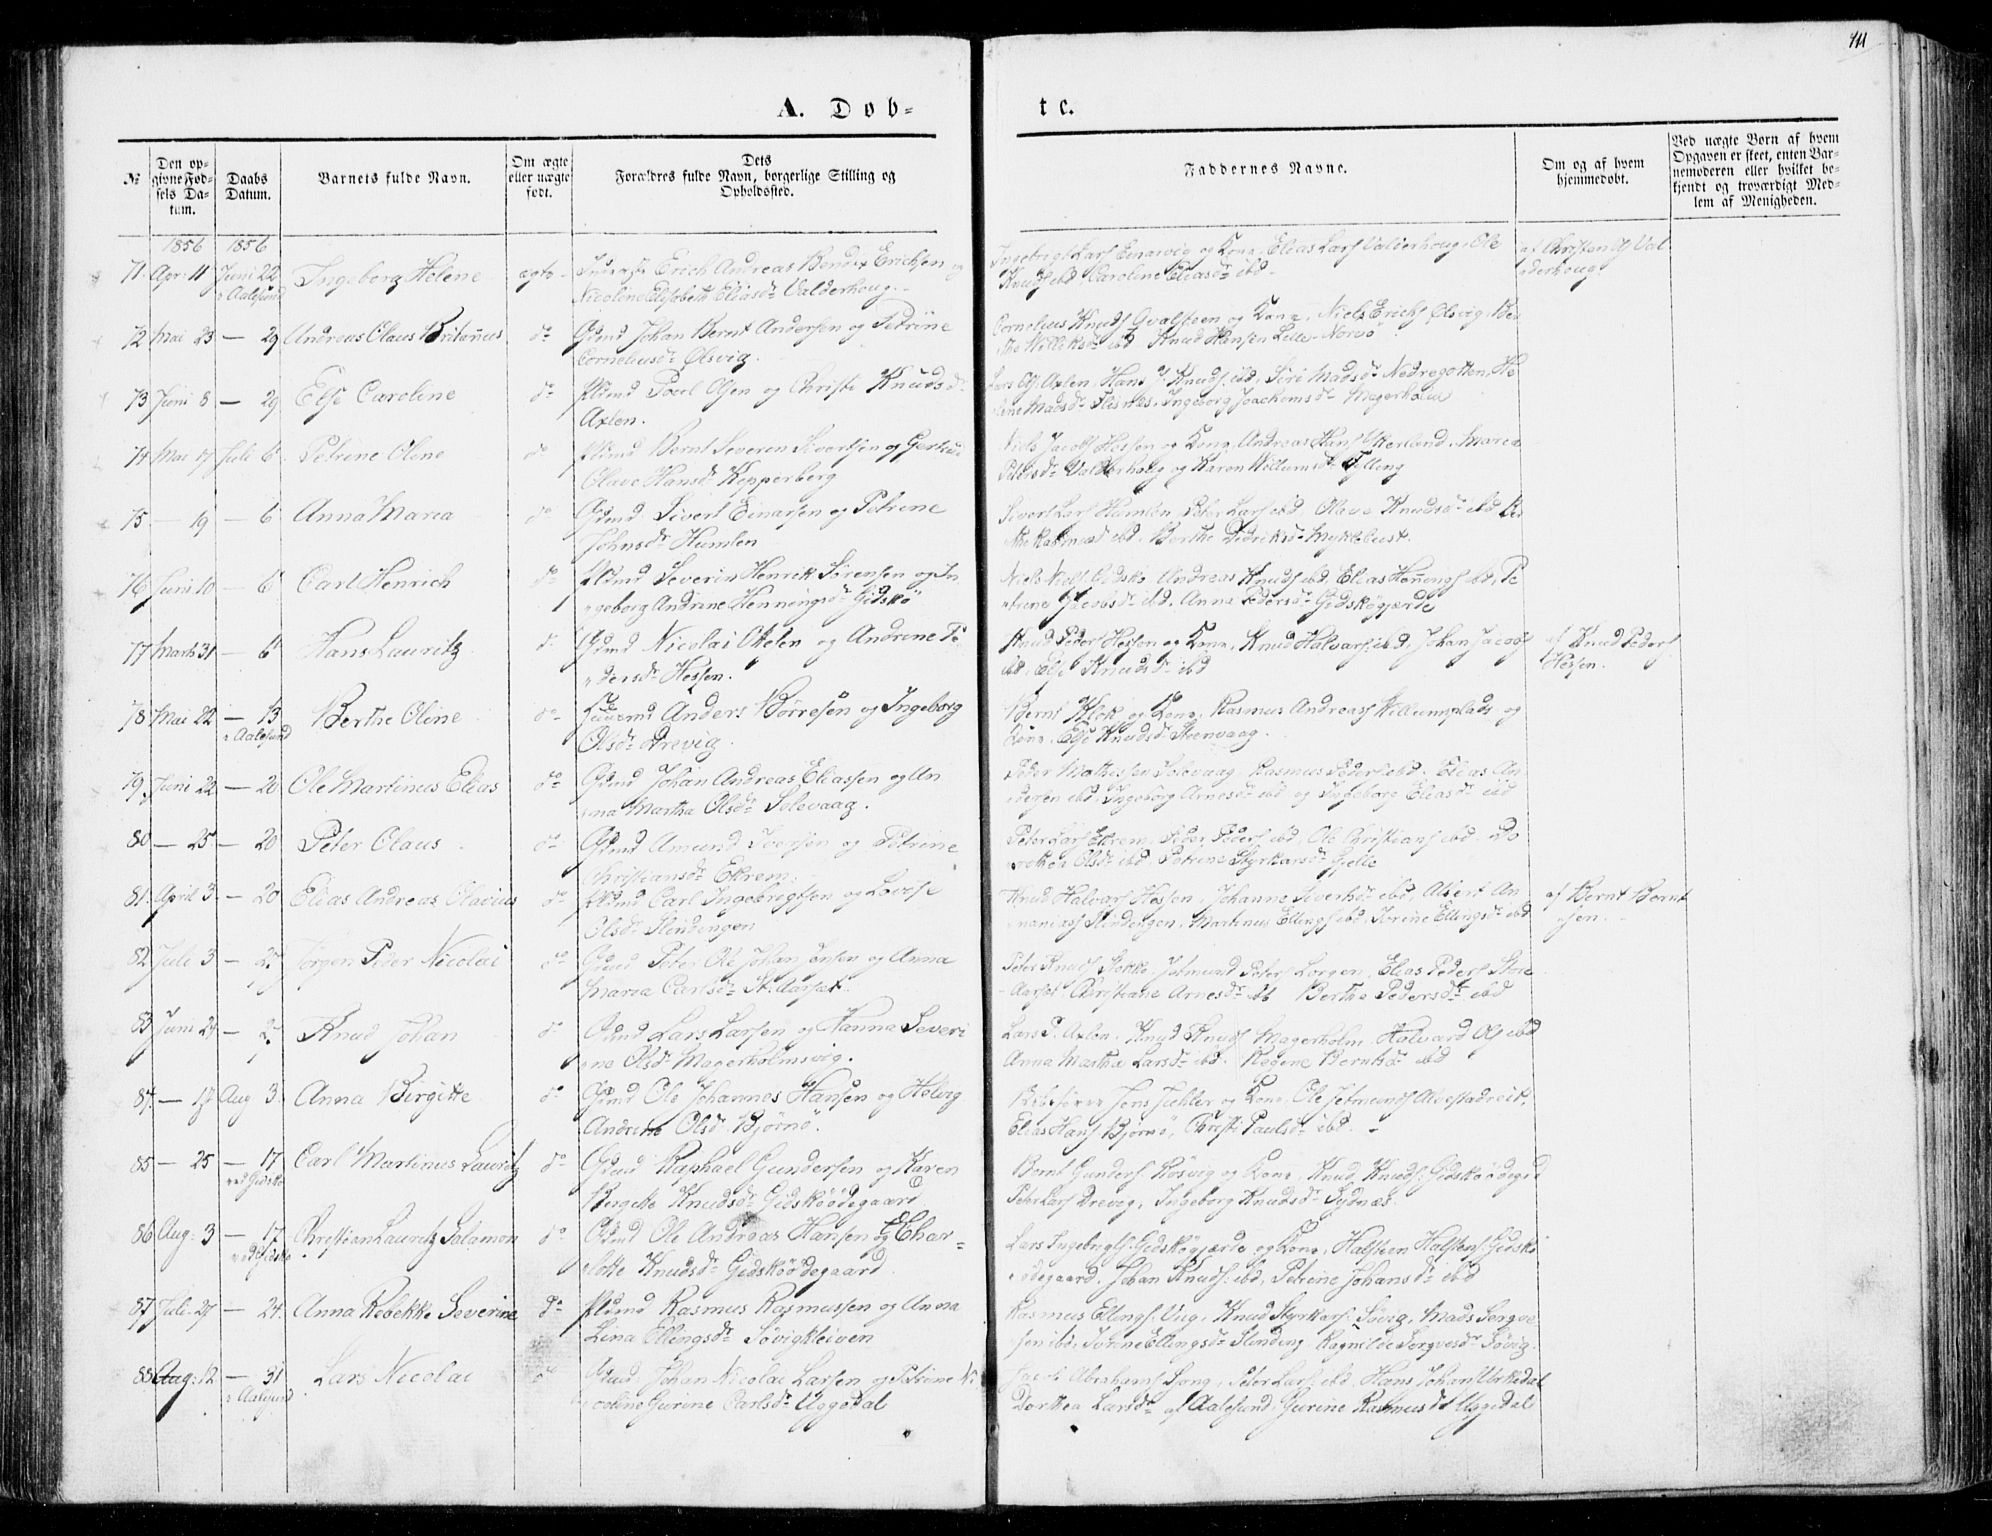 111
A. Døb=
te.
№
Den op=
givne Fød=
sels Da=
tum.
Daabs
Datum.
Barnets fulde Navn.
Om ægte
eller uægte
født.
Dets
Forældres fulde Navn, borgerlige Stilling og
Opholdssted.
Faddernes Navne.
Om og af hvem
hjemmedøbt.
Ved uægte Børn af hvem
Opgaven er skeet, enten Bar=
nemoderen eller hvilket be=
kjendt og troværdigt Med=
lem af Menigheden.
1856 1856
71 Apr. 11 Juni 22 Ingeborg Helene ægte Erich Andreas Bendix Erichsen og
i Aalesund Nicoline Elisabeth Eliasdr Valderhoug.
Ingebrigt Larss Einarvig og Kone, Elias Larss Valderhoug, Ole
Knuds ibd Caroline Eliasdr ibd
af Christen Ols Val
derhoug
72 Mai 23 — 29 Andreas Claus Britanus do Gbmd Johan Bernt Andersen og Petrine
Corneliusdr Ølsvig.
Cornelius Knuds Qvalsteen og Kone, Niels Erichs Ølsvig, Be
the Williksdr ibd Knud Hansen Lille-Norvø
73 Juni 8 — 29 Else Caroline do Plmd Poul Olsen og Christi Knudsdr
Axlen.
Lars Ols Axlen, Hans J. Knuds ibd, Siri Madsdr Nedregotten, He
line Madsdr Flisnæs, Ingeborg Joachomsdr Magerholm
74 Mai 17 Juli 6 Petrine Oline do Plmd Bernt Severin Sivertsen og Gertrud
Olave Hansdr Kipperberg
Niels Jacobs Hessen og Kone, Andreas Hans Ytterland, Maria
Petersdr Valderhoug og Karen Willumsdr Telling
75 — 19 — 6 Anna Maria do Gbmd Sivert Einarsen og Petrine
Johnsdr Humlen
Sivert Lars Humlen, Peter Lars ibd, Olave Knudsdr ibd Be
the Rasmusd ibd, Berthe Didriksdr Myklebust.
76 Juni 10 — 6 Carl Henrich do Plmd Severin Henrik Sørensen og In
geborg Andrine Henningsdr Gidskø
Niels Niels Gidskø, Andreas Knuds ibd, Elias Hennings ibd, Pe
trine Jacobsdr ibd. Anne Pedersdr Gidskøgjærde
77 Marts 31 — 6 Hans Lauritz do Gbmd Nicolai Okelen og Andrine Pe
dersdr Hessen.
Knud Peders Hessen og Kone, Knud Halvars ibd, Johan Jacobs
ibd, Else Knudsdr ibd
af Knud Peders
Hessen.
78 Mai 22 — 13 Berthe Oline do Anders Børresen og Ingeborg
i Aalesund Olsdr Drevig.
Bernt Klok og Kone, Rasmus Andreass Willumsplads og
Kone, Else Knudsd Steenvaag.
79 Juni 22 — 20 Ole Martinus Elias do Gbmd Johan Andreas Eliassen og An
na Martha Olsdr Solevaag.
Peder Mathessen Solevaag, Rasmus Peders ibd. Elias An
dersen ibd, Ingeborg Arnesdr ibd og Ingeborg Eliasdr ibd
80 — 25 — 20 Peter Olaus do Gbmd Amund Iversen og Petrine
Christiansdr Ekrem.
Peter Lars Ekrem, Peder Peders ibd, Ole Christians ibd. Do
rothea Olsdr ibd, Petrine Styrkarsdr Gjelle
81 April 3 — 20 Elias Andreas Olavius do Plmd Carl Ingebrigtsen og Lovise
Olsdr Slindingen
Knud Halvars Hessen, Johanne Sivertsdr ibd, Alsert An
nanias Slindingen, Martinus Ellings ibd. Serine Ellingsdr ibd
af Bernt Bernt
sen.
82 Juli 3 — 27 Jørgen Peder Nicolai do Gbmd Peter Ole Johan Jonsen og Anna
Maria Carlsdr St: Aarsæt.
Peter Knuds Slokke Jetmund Peters Lorgen, Elias Peders Store
Aarset Christiane Arnesdr ibd Berthe Pedersdr ibd
83 Juni 24 — 27 Knud Johan do Gbmd Lars Larsen og Hanna Severi
ne Olsdr Magerholmsvig.
Lars P. Axlen, Knud Knuds Magerholm Halvard Ols ibd
Anna Martha Larsdr ibd. Regine Berntsdr ibd
84 — 17 Aug 3 Anna Birgitte do Gbmd Ole Johannes Hansen og Helvig
Andrine Olsdr Bjørnø.
Jens Juhler og Kone, Ole Jetmunds Alvestadreit,
Elias Hans Bjørnø, Christi Paulsdr ibd.
85 — 25 — 17 Carl Martinus Lauritz do Gbmd Raphael Gundersen og Karen
ved Gidske Bergitte Knudsdr Gidskøødegaard
Bernt Gunders Røsvig og Kone Knud Knuds Gidskøødegrd
Peter Lars Drevig, Ingeborg Knudsdr Sydnæs.
86 Aug: 3 — 17 Christian Lauritz Salamon do Gbmd Ole Andreas Hansen og Char=
ved Gidske lotte Knudsdr Gidskøødegaard
Lars Ingebrigts Gidskøgjærde og Kone, Halsteen Halstens Gidskø
ødegaard. Johan Knuds ibd, Petrine Johansdr ibd
87 Juli 27 — 24 Anna Rebekke Severine do Plmd Rasmus Rasmussen og Anna
Lina Ellingsdr Søvigkleiven
Rasmus Ellings Vug, Knud Styrkars Søvig, Mads Sergve
sen ibd, Severine Ellingsdr Slinding Ragnilde Sergvesdr Søvig
88 Aug: 12 — 31 Lars Nicolai do Gbmd Johan Nicolai Larsen og Petrine Ni
i Aalesund coline Gurine Carlsdr Uggedal
Jacob Abrahams Song, Peter Lars ibd Hans Johan Urkedal
Dorthea Larsdr af Aalesund, Gurine Rasmusdr Uggedal